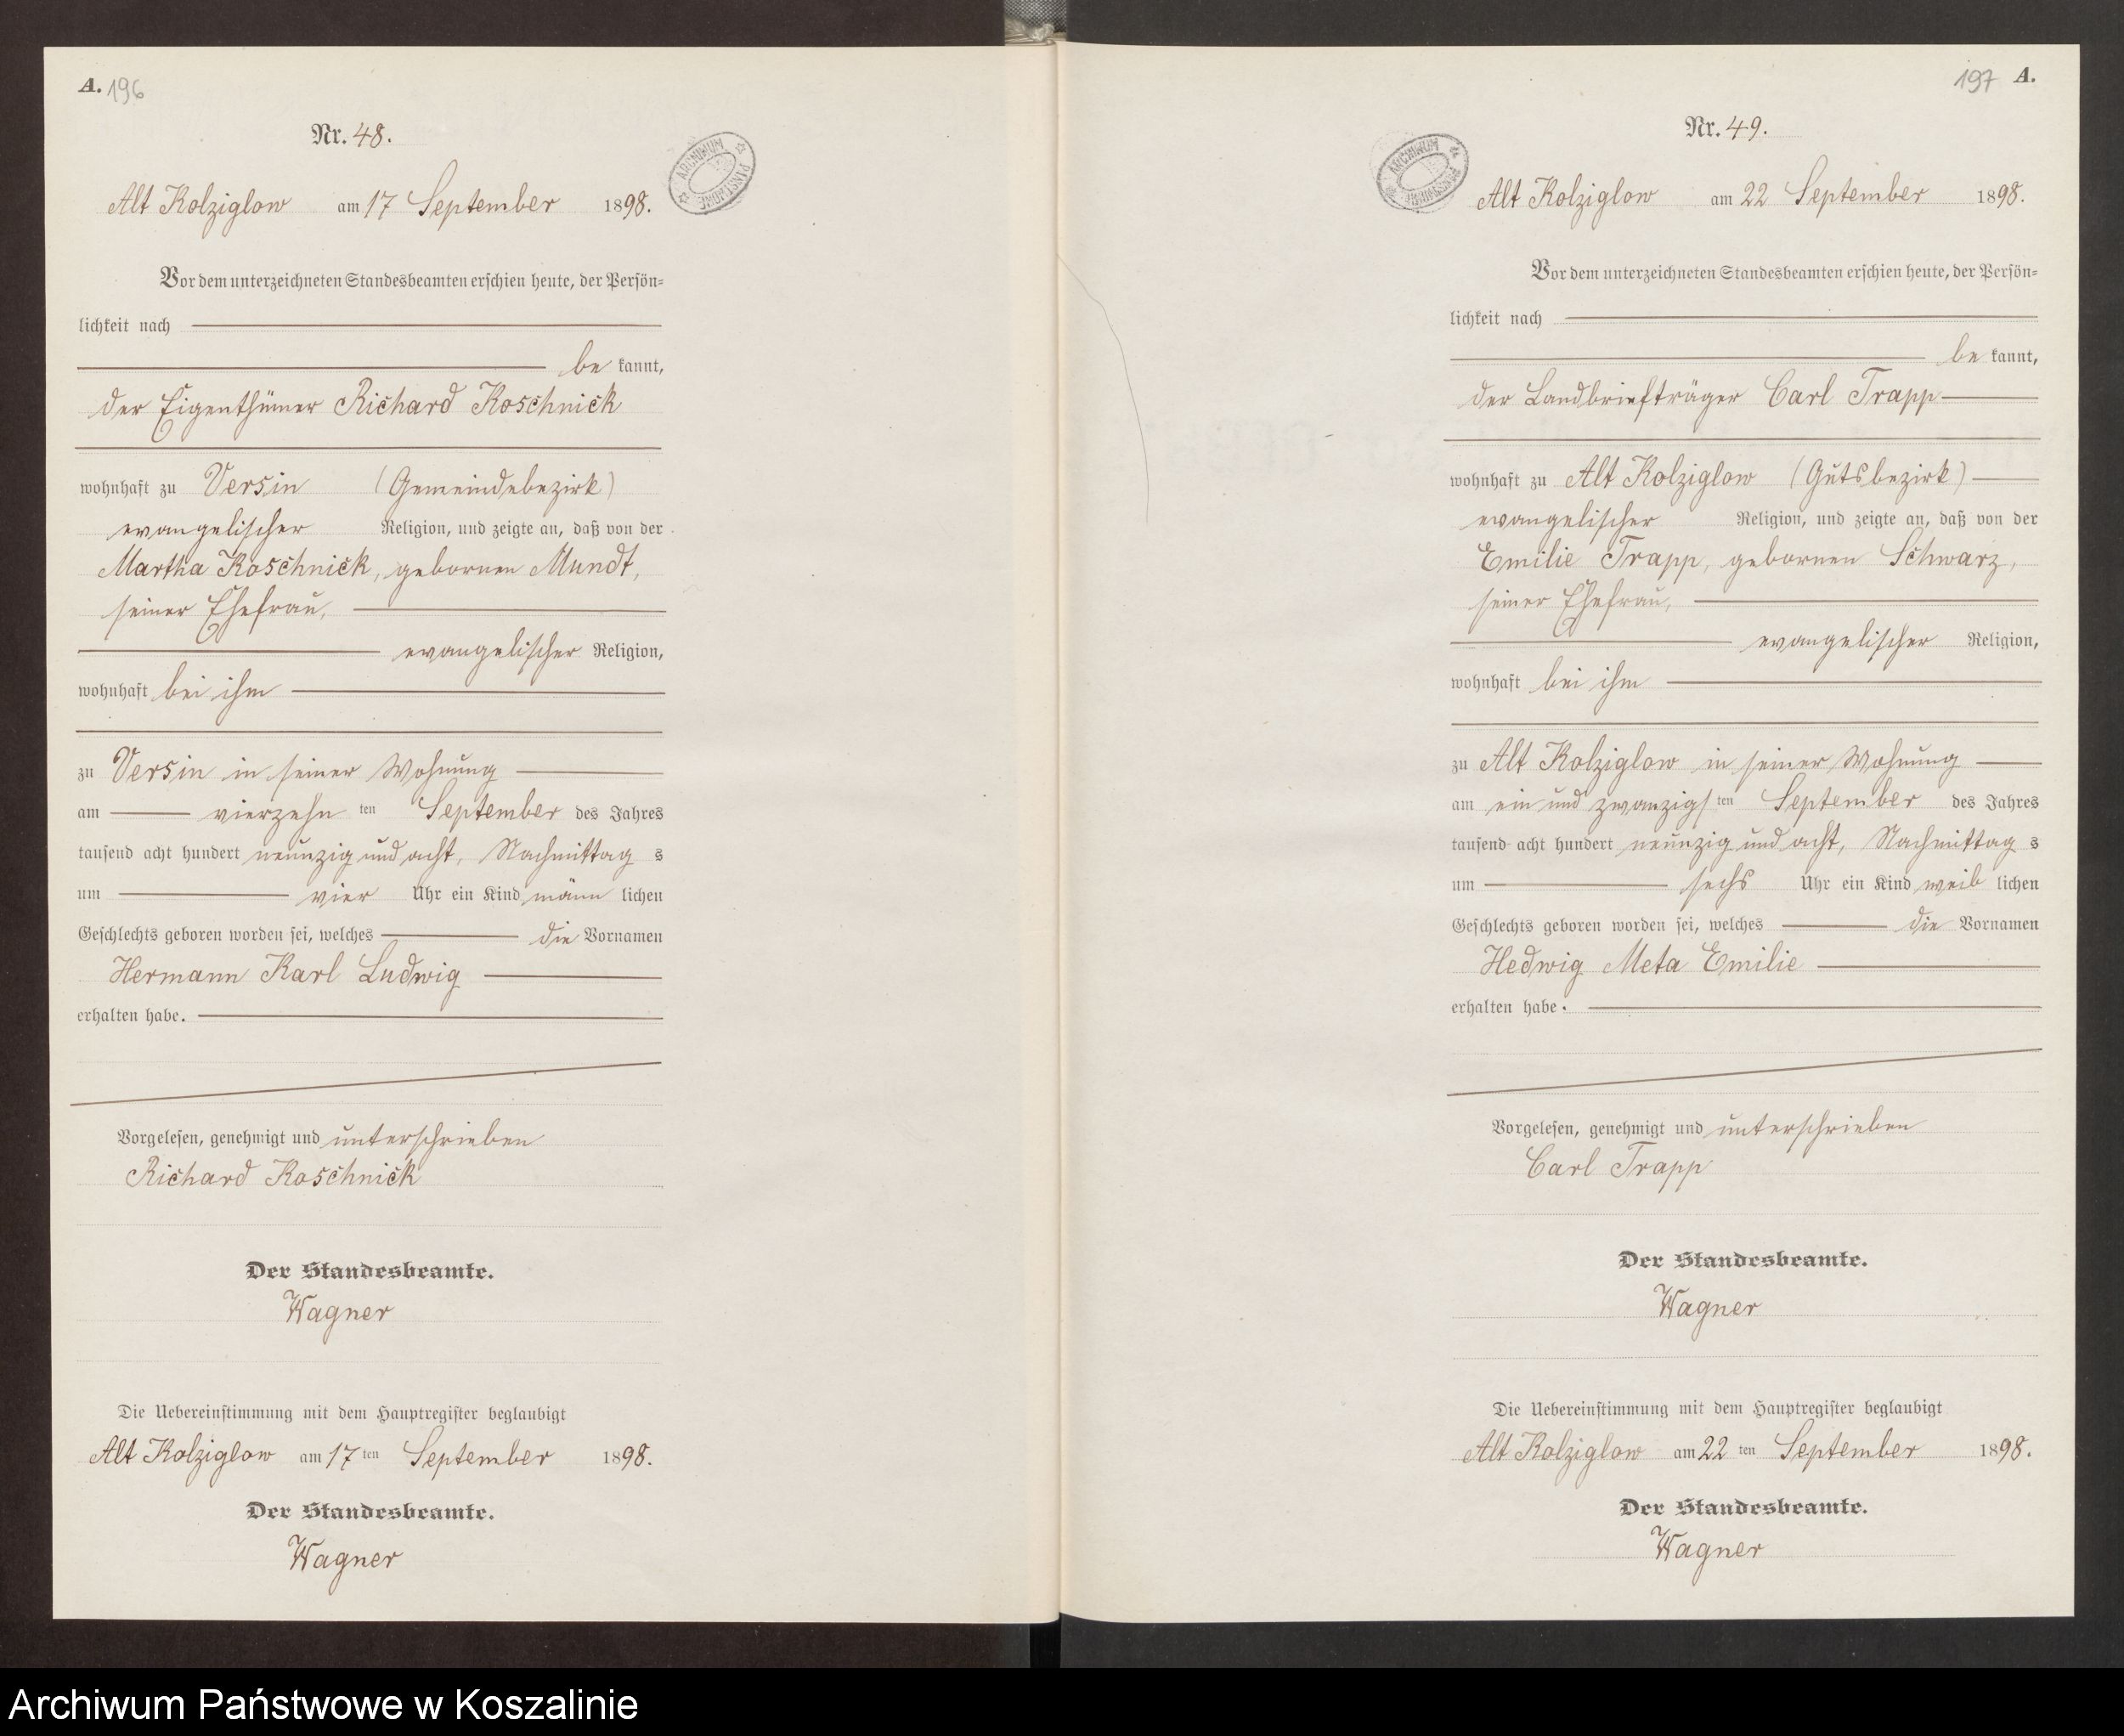 A. 196
Nr. 48.
ARCHIWUM PAŃSTWOWE
Alt Kolziglow am 17 September 1898.
Vor dem unterzeichneten Standesbeamten erschien heute, der Persön-
lichkeit nach
be kannt,
der Eigenthümer Richard Koschnick
wohnhaft zu Versin (Gemeindebezirk)
evangelischer Religion, und zeigte an, daß von der
Martha Koschnick, gebornen Mundt,
seiner Ehefrau,
evangelischer Religion,
wohnhaft bei ihm
zu Versin in seiner Wohnung
am vierzehn ten September des Jahres
tausend acht hundert neunzig und acht, Nachmittag s
um vier Uhr ein Kind männ lichen
Geschlechts geboren worden sei, welches die Vornamen
Hermann Karl Ludwig
erhalten habe.
Vorgelesen, genehmigt und unterschrieben
Richard Koschnick
Der Standesbeamte.
Wagner
Die Uebereinstimmung mit dem Hauptregister beglaubigt
Alt Kolziglow am 17 ten September 1898.
Der Standesbeamte.
Wagner
197 A.
Nr. 49.
ARCHIWUM PAŃSTWOWE
Alt Kolziglow am 22 September 1898.
Vor dem unterzeichneten Standesbeamten erschien heute, der Persön-
lichkeit nach
be kannt,
der Landbriefträger Carl Trapp
wohnhaft zu Alt Kolziglow (Gutsbezirk)
evangelischer Religion, und zeigte an, daß von der
Emilie Trapp, gebornen Schwarz,
seiner Ehefrau,
evangelischer Religion,
wohnhaft bei ihm
zu Alt Kolziglow in seiner Wohnung
am ein und zwanzigs ten September des Jahres
tausend acht hundert neunzig und acht, Nachmittag s
um sechs Uhr ein Kind weib lichen
Geschlechts geboren worden sei, welches die Vornamen
Hedwig Meta Emilie
erhalten habe.
Vorgelesen, genehmigt und unterschrieben
Carl Trapp
Der Standesbeamte.
Wagner
Die Uebereinstimmung mit dem Hauptregister beglaubigt
Alt Kolziglow am 22 ten September 1898.
Der Standesbeamte.
Wagner
Archiwum Państwowe w Koszalinie